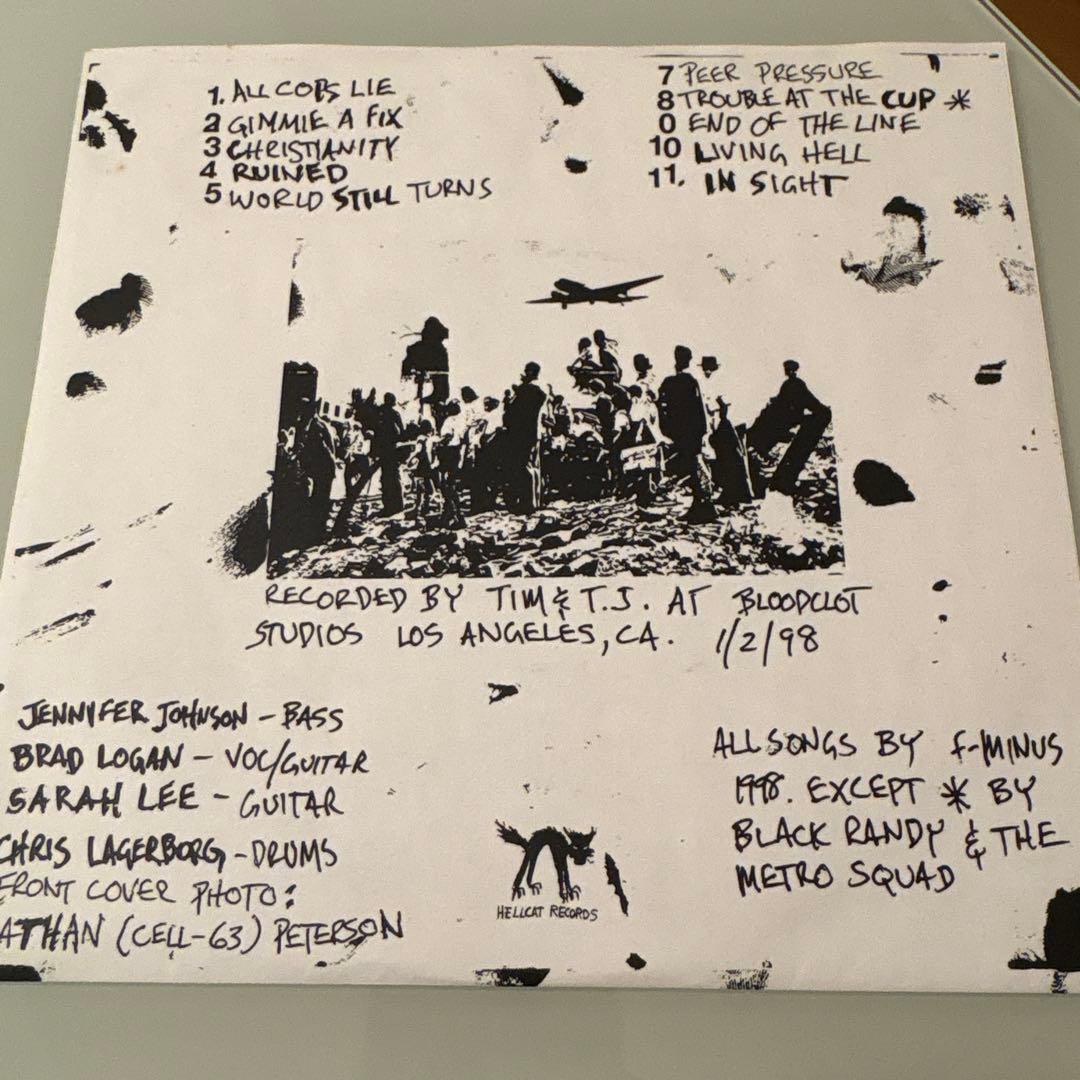 1. ALL COPS LIE
2 GIMMIE A FIX
3 CHRISTIANITY
4 RUINED
5 WORLD STILL TURNS
7 PEER PRESSURE
8 TROUBLE AT THE CUP *
0 END OF THE LINE
10 LIVING HELL
11. IN SIGHT
RECORDED BY TIM & T.J. AT BLOODCLOT
STUDIOS LOS ANGELES, CA. 1/2/98
JENNIFER JOHNSON - BASS
BRAD LOGAN - VOC/GUITAR
SARAH LEE - GUITAR
CHRIS LAGERBORG - DRUMS
FRONT COVER PHOTO:
ATHAN (CELL-63) PETERSON
ALL SONGS BY F-MINUS
1998. EXCEPT * BY
BLACK RANDY & THE
METRO SQUAD
HELLCAT RECORDS